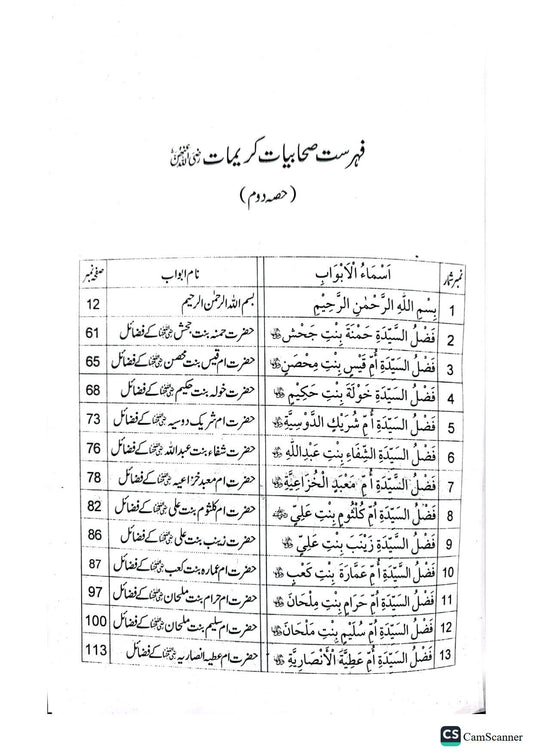 فہرست صحابیات کریمات رضی اللہ عنہن
(حصہ دوم)
نمبر شمار اَسْمَاءُ الْاَبْوَابِ نام ابواب صفحہ نمبر
1 بِسْمِ اللهِ الرَّحْمٰنِ الرَّحِيْمِ بسم اللہ الرحمٰن الرحیم 12
2 فَضْلُ السَّيِّدَةِ حَمْنَةَ بِنْتِ جَحْشٍ حضرت حمنہ بنت جحش کے فضائل 61
3 فَضْلُ السَّيِّدَةِ أُمِّ قَيْسٍ بِنْتِ مِحْصَنٍ حضرت ام قیس بنت محصن کے فضائل 65
4 فَضْلُ السَّيِّدَةِ خَوْلَةَ بِنْتِ حَكِيْمٍ حضرت خولہ بنت حکیم کے فضائل 68
5 فَضْلُ السَّيِّدَةِ أُمِّ شُرَيْكٍ الدَّوْسِيَّةِ حضرت ام شریک دوسیہ کے فضائل 73
6 فَضْلُ السَّيِّدَةِ الشِّفَاءِ بِنْتِ عَبْدِاللهِ حضرت شفاء بنت عبداللہ کے فضائل 76
7 فَضْلُ السَّيِّدَةِ أُمِّ مَعْبَدٍ الْخُزَاعِيَّةِ حضرت ام معبد خزاعیہ کے فضائل 78
8 فَضْلُ السَّيِّدَةِ أُمِّ كُلْثُوْمٍ بِنْتِ عَلِيٍّ حضرت ام کلثوم بنت علی کے فضائل 82
9 فَضْلُ السَّيِّدَةِ زَيْنَبَ بِنْتِ عَلِيٍّ حضرت زینب بنت علی کے فضائل 86
10 فَضْلُ السَّيِّدَةِ أُمِّ عَمَّارَةَ بِنْتِ كَعْبٍ حضرت ام عمارہ بنت کعب کے فضائل 87
11 فَضْلُ السَّيِّدَةِ أُمِّ حَرَامٍ بِنْتِ مِلْحَانَ حضرت ام حرام بنت ملحان کے فضائل 97
12 فَضْلُ السَّيِّدَةِ أُمِّ سُلَيْمٍ بِنْتِ مَلْحَانَ حضرت ام سلیم بنت ملحان کے فضائل 100
13 فَضْلُ السَّيِّدَةِ أُمِّ عَطِيَّةَ الْأَنْصَارِيَّةِ حضرت ام عطیہ انصاریہ کے فضائل 113
CS CamScanner